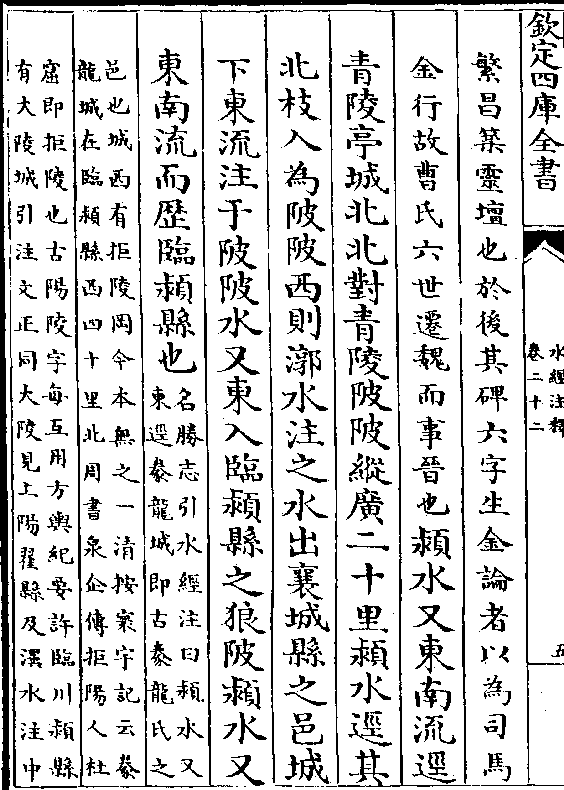 欽定四庫全書
水經注釋
卷二十二
五
繁昌築靈壇也於後其碑六字生金論者以為司馬
金行故曹氏六世遷魏而事晉也潁水又東南流逕
青陵亭城北北對青陵陂陂縱廣二十里潁水逕其
北枝入為陂陂西則漷水注之水出襄城縣之邑城
下東流注于陂陂水又東入臨潁縣之狼陂潁水又
東南流而歷臨潁縣也
名勝志引水經注曰潁水又
東逕豢龍城即古豢龍氏之
邑也城西有拒陵岡今本無之一清按寰宇記云豢
龍城在臨潁縣西四十里北周書泉企傳拒陽人杜
窟即拒陵也古陽陵字每互用方輿紀要許臨川潁縣
有大陵城引注文正同大陵見上陽翟縣及潩水注中